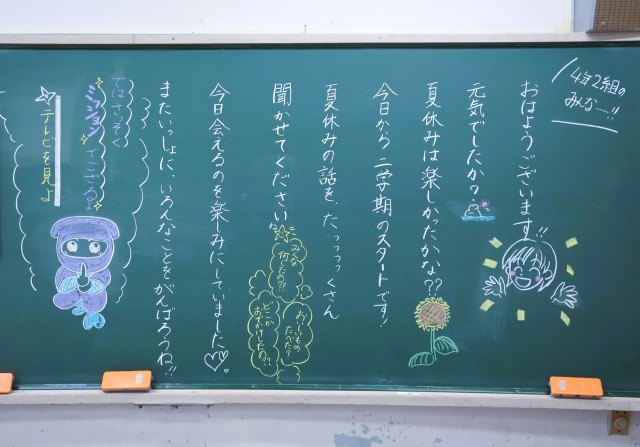 4年2組の
みんなー!!
おはようございます!!
元気でしたか?
夏休みは楽しかったかな??
今日から二学期のスタートです!
夏休みの話を、たっっっっくさん
聞かせてくださいね
みんな
何したの?!
おいしいもの
たべた?
どこか
おでかけしたの?
今日会えるのを楽しみにしていました♡♡
またいっしょに、いろんなことをがんばろうね!!
ではさっそく
ミッションでござる♪
テレビを見よ